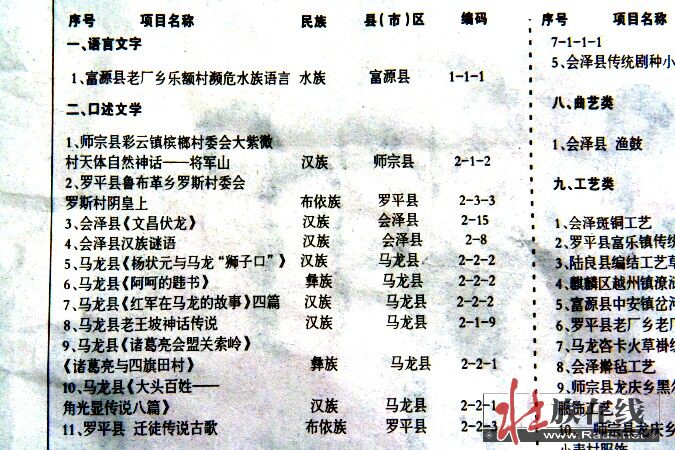 序号 项目名称 民族 县(市)区 编码
一、语言文字
1、富源县老厂乡乐额村濒危水族语言 水族 富源县 1-1-1
二、口述文学
1、师宗县彩云镇槟榔村委会大紫微
村天体自然神话——将军山 汉族 师宗县 2-1-2
2、罗平县鲁布革乡罗斯村委会
罗斯村阴皇上 布依族 罗平县 2-3-3
3、会泽县《文昌伏龙》 汉族 会泽县 2-15
4、会泽县汉族谜语 汉族 会泽县 2-8
5、马龙县《杨状元与马龙“狮子口”》 汉族 马龙县 2-2-2
6、马龙县《阿呵的 书》 彝族 马龙县 2-2-2
7、马龙县《红军在马龙的故事》四篇 汉族 马龙县 2-2-2
8、马龙县老王坡神话传说 汉族 马龙县 2-1-9
9、马龙县《诸葛亮会盟关索岭》
《诸葛亮与四旗田村》 彝族 马龙县 2-2-1
10、马龙县《大头百姓——
角光显传说八篇》 汉族 马龙县 2-2-1
11、罗平县 迁徒传说古歌 布依族 罗平县 2-2-3
序号 项目名
7-1-1-1
5、会泽县传统剧种小
八、曲艺类
1、会泽县 渔鼓
九、工艺类
1、会泽斑铜工艺
2、罗平县富乐镇传统
3、陆良县编结工艺草
4、麒麟区越州镇潦浒
5、富源县中安镇岔河
6、罗平县老厂乡老厂
7、马龙咨卡火草褂
8、会泽擀毡工艺
9、师宗县龙庆乡黑尔
服饰工艺
10、师宗县龙庆乡
小麦村服饰
壮族在线
www.Rauz.net